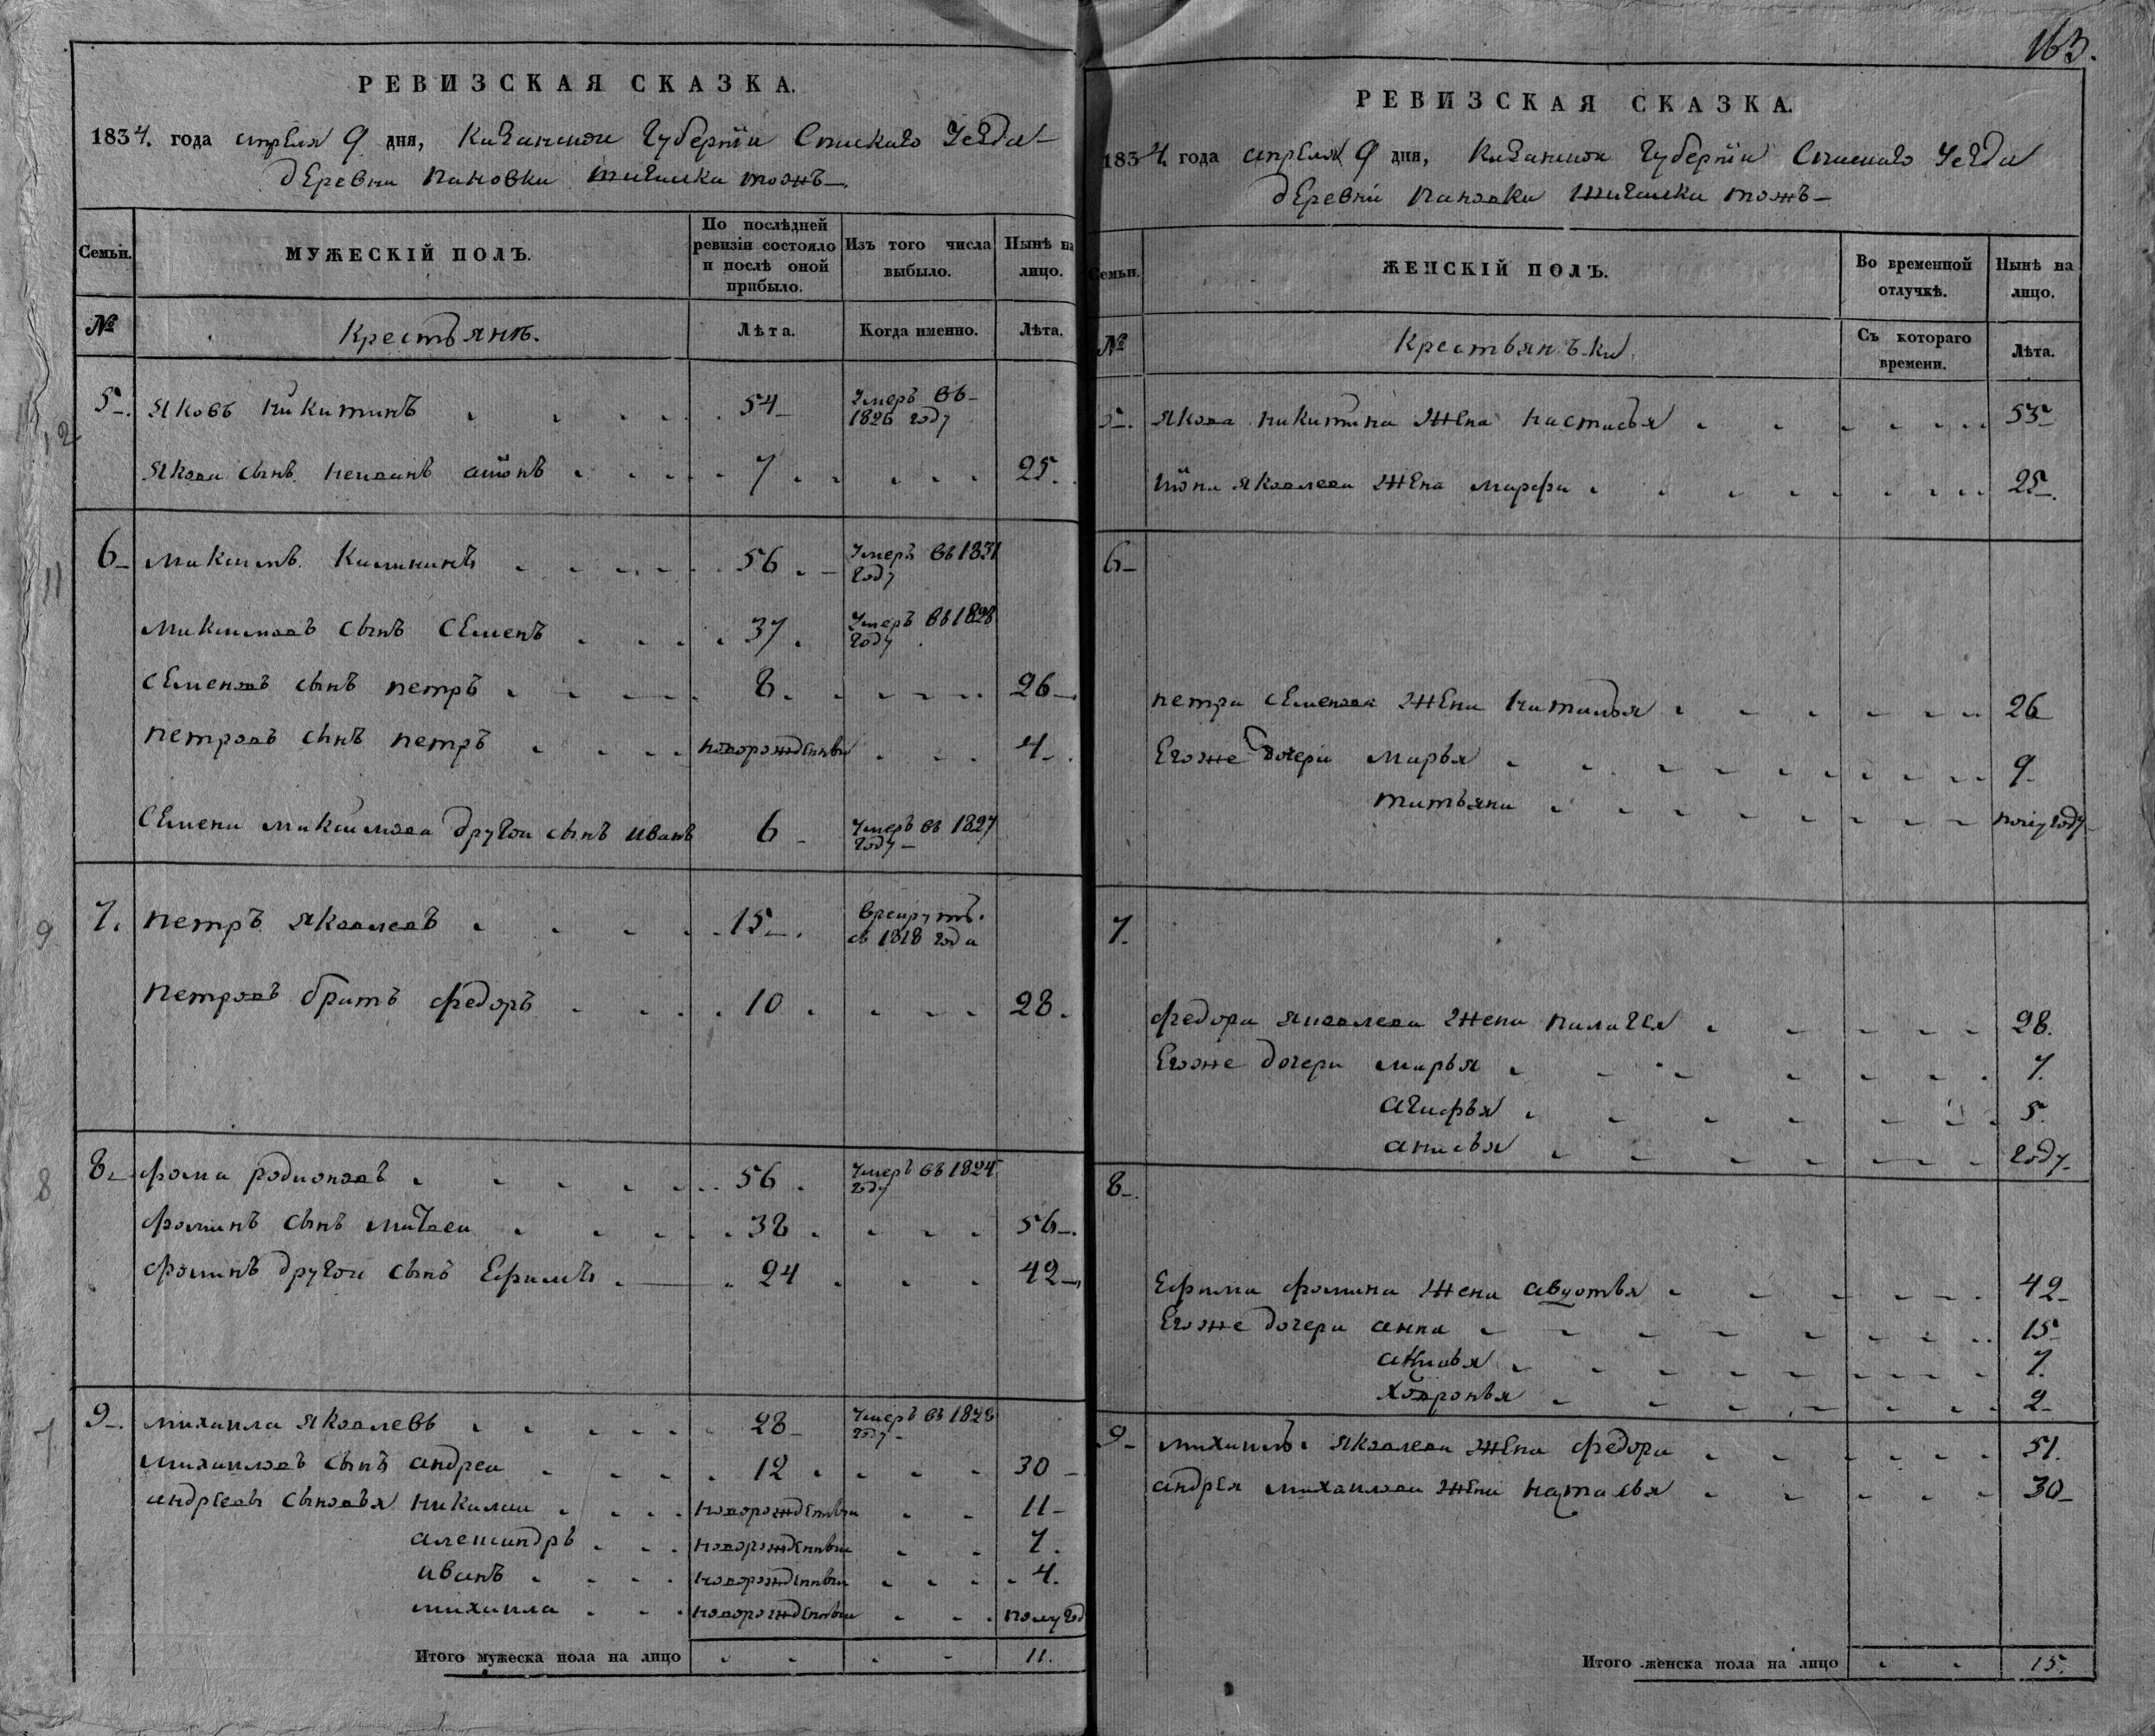 163.
РЕВИЗСКАЯ СКАЗКА.
1834. года апреля 9 дня, Казанской Губернiи Спаскаго Уезда
деревни пановки тожъ
Семьи.
МУЖЕСКІЙ ПОЛЪ.
По послѣдней ревизіи состояло и послѣ оной прибыло.
Изъ того числа выбыло.
Нынѣ на лицо.
№
Крестьяне.
Лѣта.
Когда именно.
Лѣта.
5. Яковъ никитинъ 54 Умеръ въ 1826 году
Якова сынъ 7 25.
6 максимъ калининъ 56 Умеръ въ 1831 году
максимовъ сынъ семенъ 37 Умеръ въ 1828 году
семеновъ сынъ петръ 8 26
петровъ сынъ петръ новорожденныи 4
семена максимова другои сынъ иванъ 6 Умеръ въ 1827 году
7. петръ яковлевъ 15 врекрутъ. съ 1818 года
петровъ братъ федоръ 10 28
8 фома родионовъ 56 Умеръ въ 1824 году
фоминъ сынъ матвеи 38 56
фоминъ другои сынъ Ефимъ 24 42
9 михаила яковлевъ 28 Умеръ въ 1828 году
михаиловъ сынъ андреи 12 30
андреевы сыновья николаи новорожденныи 11
александръ новорожденныи 7.
иванъ новорожденныи 4.
михаила новорожденныи полугод
Итого мужеска пола на лицо 11.
РЕВИЗСКАЯ СКАЗКА.
1834. года апреля 9 дня, Казанской Губернiи Спаскаго Уезда
деревнi пановки тожъ
Семьи.
ЖЕНСКІЙ ПОЛЪ.
Во временной отлучкѣ.
Нынѣ на лицо.
№
Крестьянъки
Съ котораго времени.
Лѣта.
5. якова никитина жена настасья 53
яковлева жена марфа 25
6
петра семенова жена наталья 26
Егоже дочери марья 9
татьяна полугоду
7.
федора яковлева жена палагея 28.
Егоже дочери марья 7.
агафья 5
анисья году
8
Ефима фомина жена авдотья 42
Егоже дочери анна 15
7.
ховронья 2
9 михаилы яковлева жена федора 51.
андрея михаилова жена наталья 30
Итого женска пола на лицо 15.
12
11
9
8
7